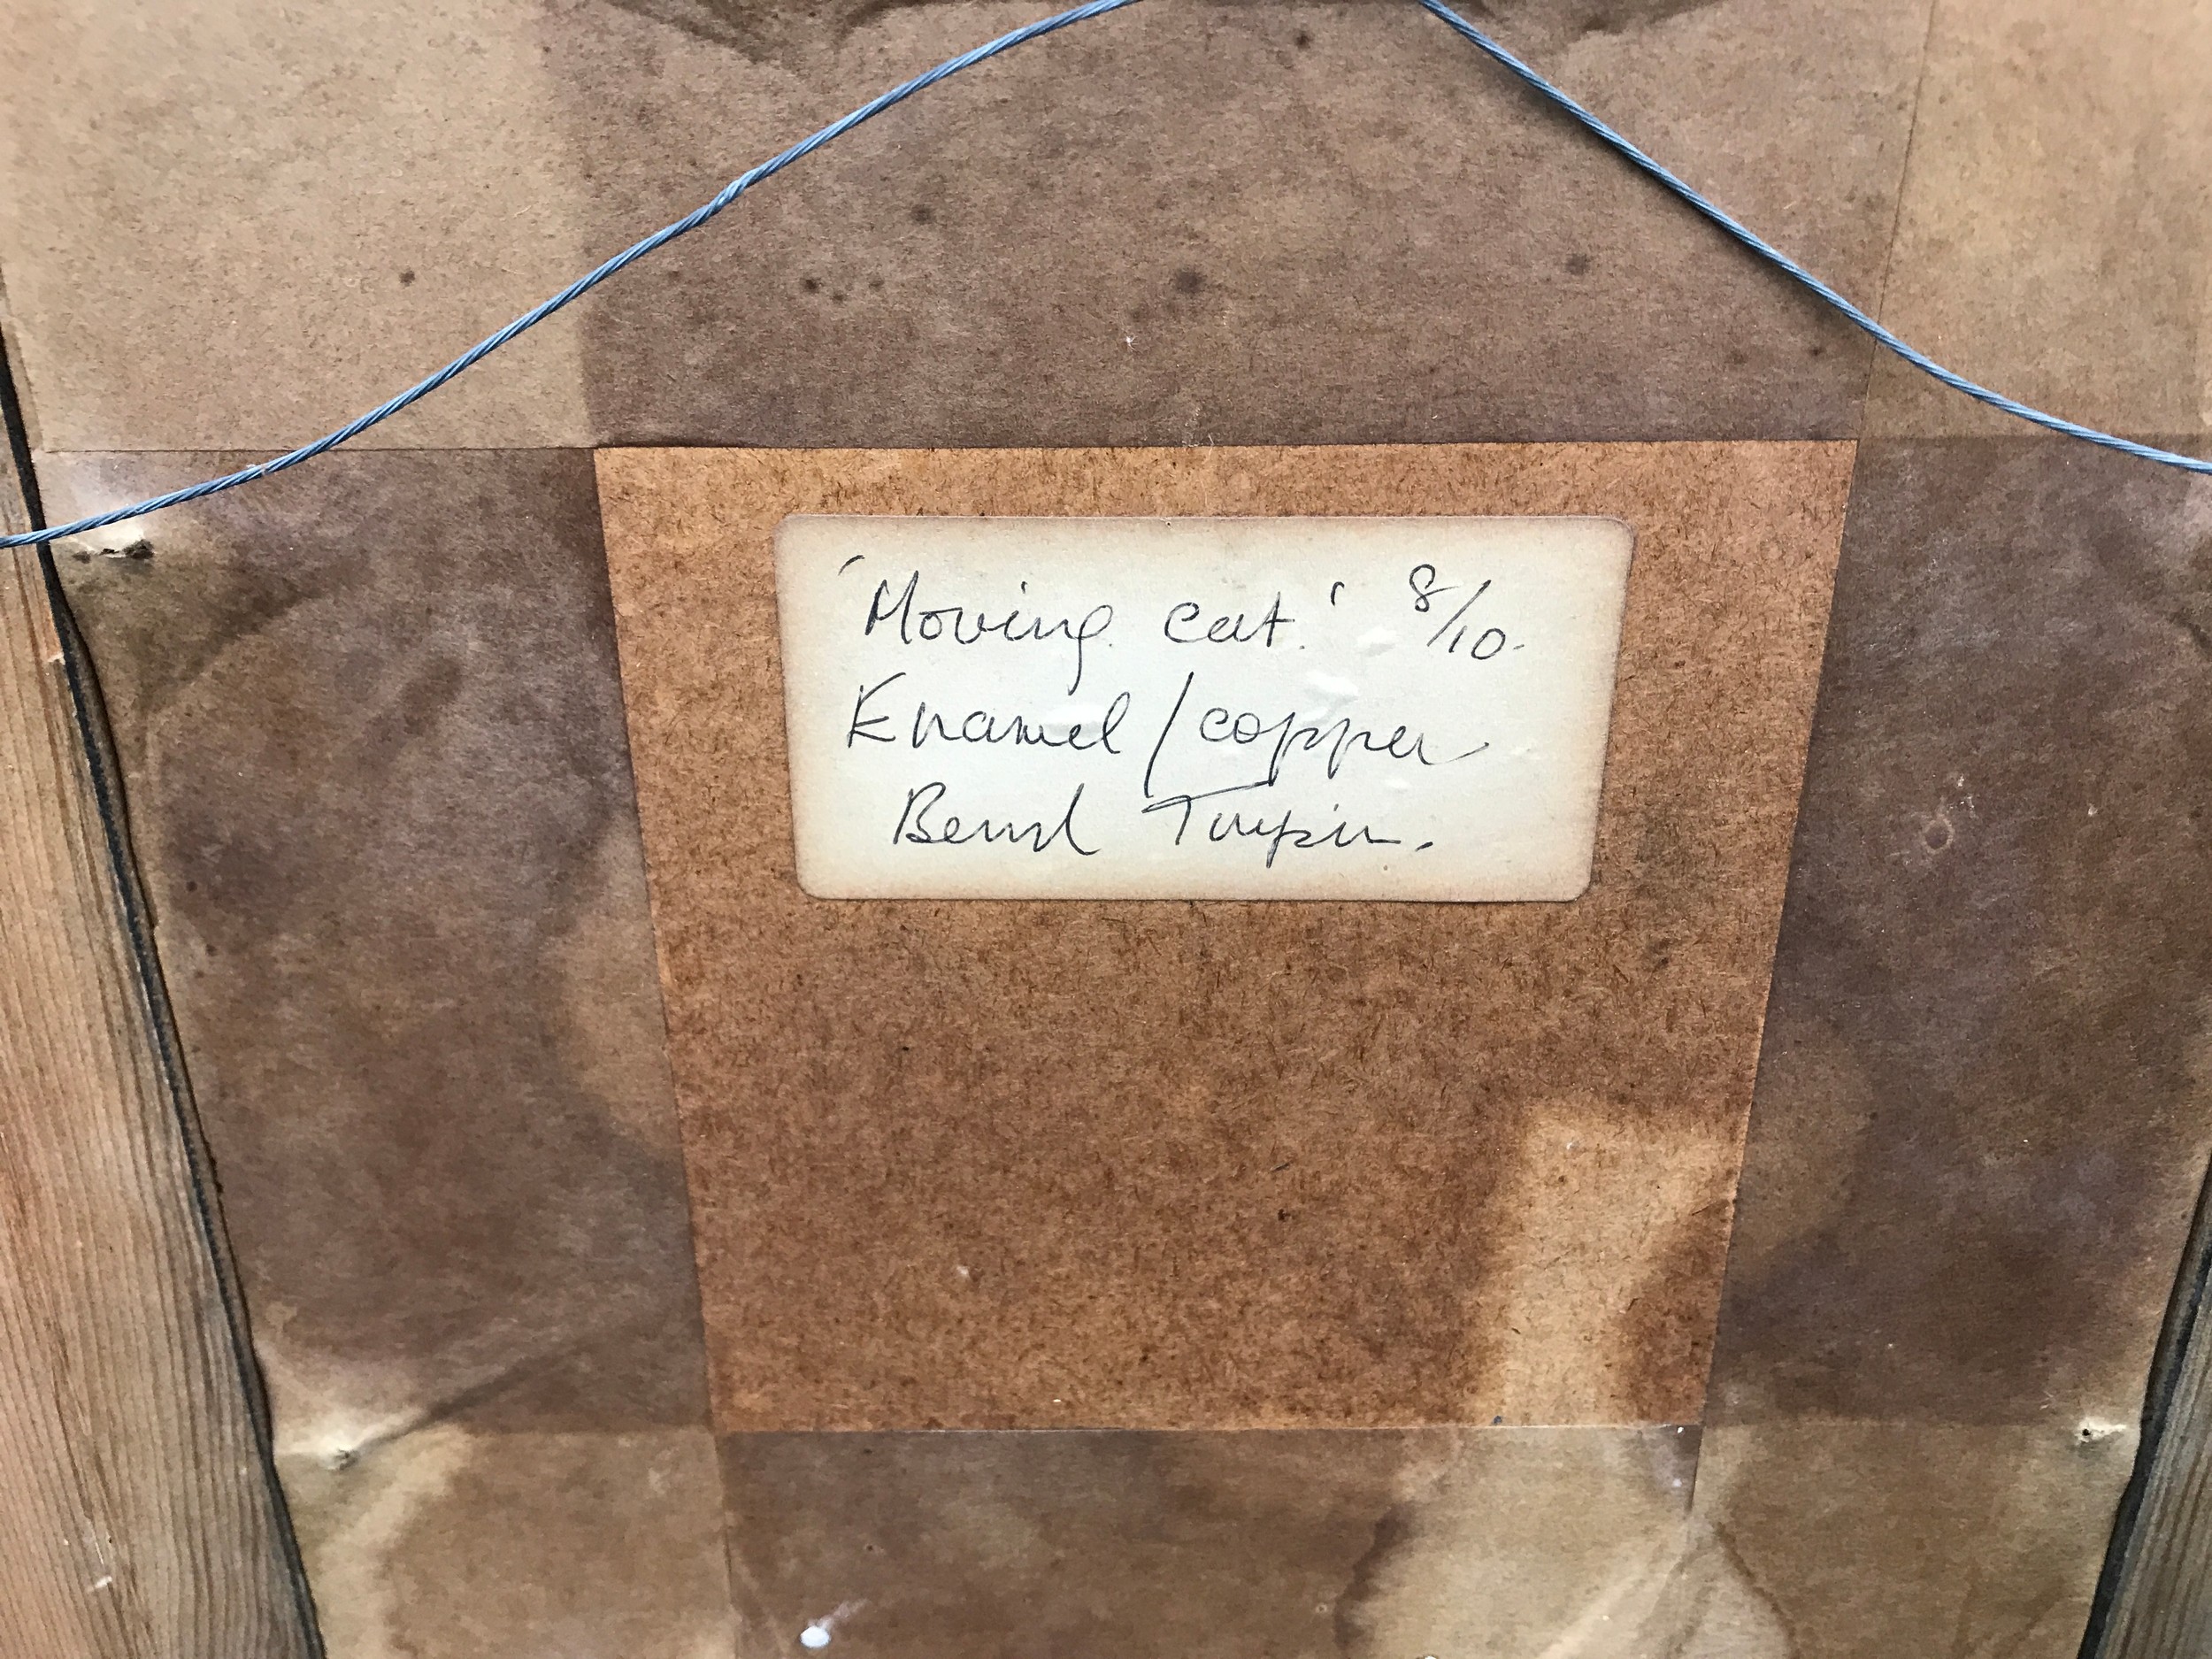 'Moving cat.' 8/10.
Enamel/copper
Bernd Turpin.